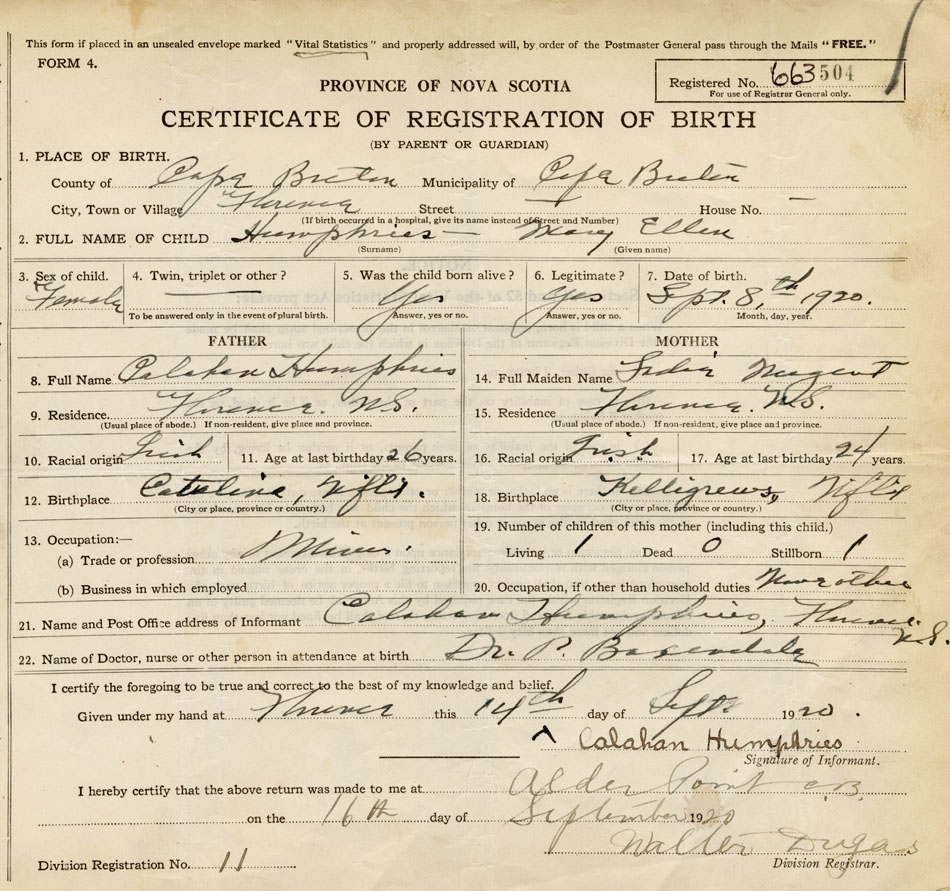 This form if placed in an unsealed envelope marked "Vital Statistics" and properly addressed will, by order of the Postmaster General pass through the Mails "FREE."
FORM 4.
Registered No. 663504
For use of Registrar General only.
PROVINCE OF NOVA SCOTIA
CERTIFICATE OF REGISTRATION OF BIRTH
(BY PARENT OR GUARDIAN)
1. PLACE OF BIRTH.
County of Cape Breton Municipality of Cape Breton
City, Town or Village Florence Street — House No. —
(If birth occurred in a hospital, give its name instead of Street and Number)
2. FULL NAME OF CHILD Humphries — Mary Ellen
(Surname) (Given name)
3. Sex of child. 4. Twin, triplet or other? 5. Was the child born alive? 6. Legitimate? 7. Date of birth.
Female — Yes Yes Sept. 8,th 1920.
To be answered only in the event of plural birth. Answer, yes or no. Answer, yes or no. Month, day, year.
FATHER
8. Full Name Calahan Humphries
9. Residence Florence. N.S.
(Usual place of abode.) If non-resident, give place and province.
10. Racial origin Irish 11. Age at last birthday 26 years.
12. Birthplace Catalina, Nfld.
(City or place, province or country.)
13. Occupation:—
(a) Trade or profession Miner.
(b) Business in which employed
MOTHER
14. Full Maiden Name Nugent
15. Residence Florence. N.S.
(Usual place of abode.) If non-resident, give place and province.
16. Racial origin Irish 17. Age at last birthday 24 years.
18. Birthplace Kelligrews, Nfld
(City or place, province or country.)
19. Number of children of this mother (including this child.)
Living 1 Dead 0 Stillborn 1
20. Occupation, if other than household duties None other
21. Name and Post Office address of Informant Calahan Humphries, Florence. N.S.
22. Name of Doctor, nurse or other person in attendance at birth Dr. P.
I certify the foregoing to be true and correct to the best of my knowledge and belief.
Given under my hand at Florence this 14th day of Sept. 1920.
Calahan Humphries
Signature of Informant.
I hereby certify that the above return was made to me at Alder Point C.B.
on the 16th day of September 1920
Walter Dugas
Division Registration No. 11 Division Registrar.